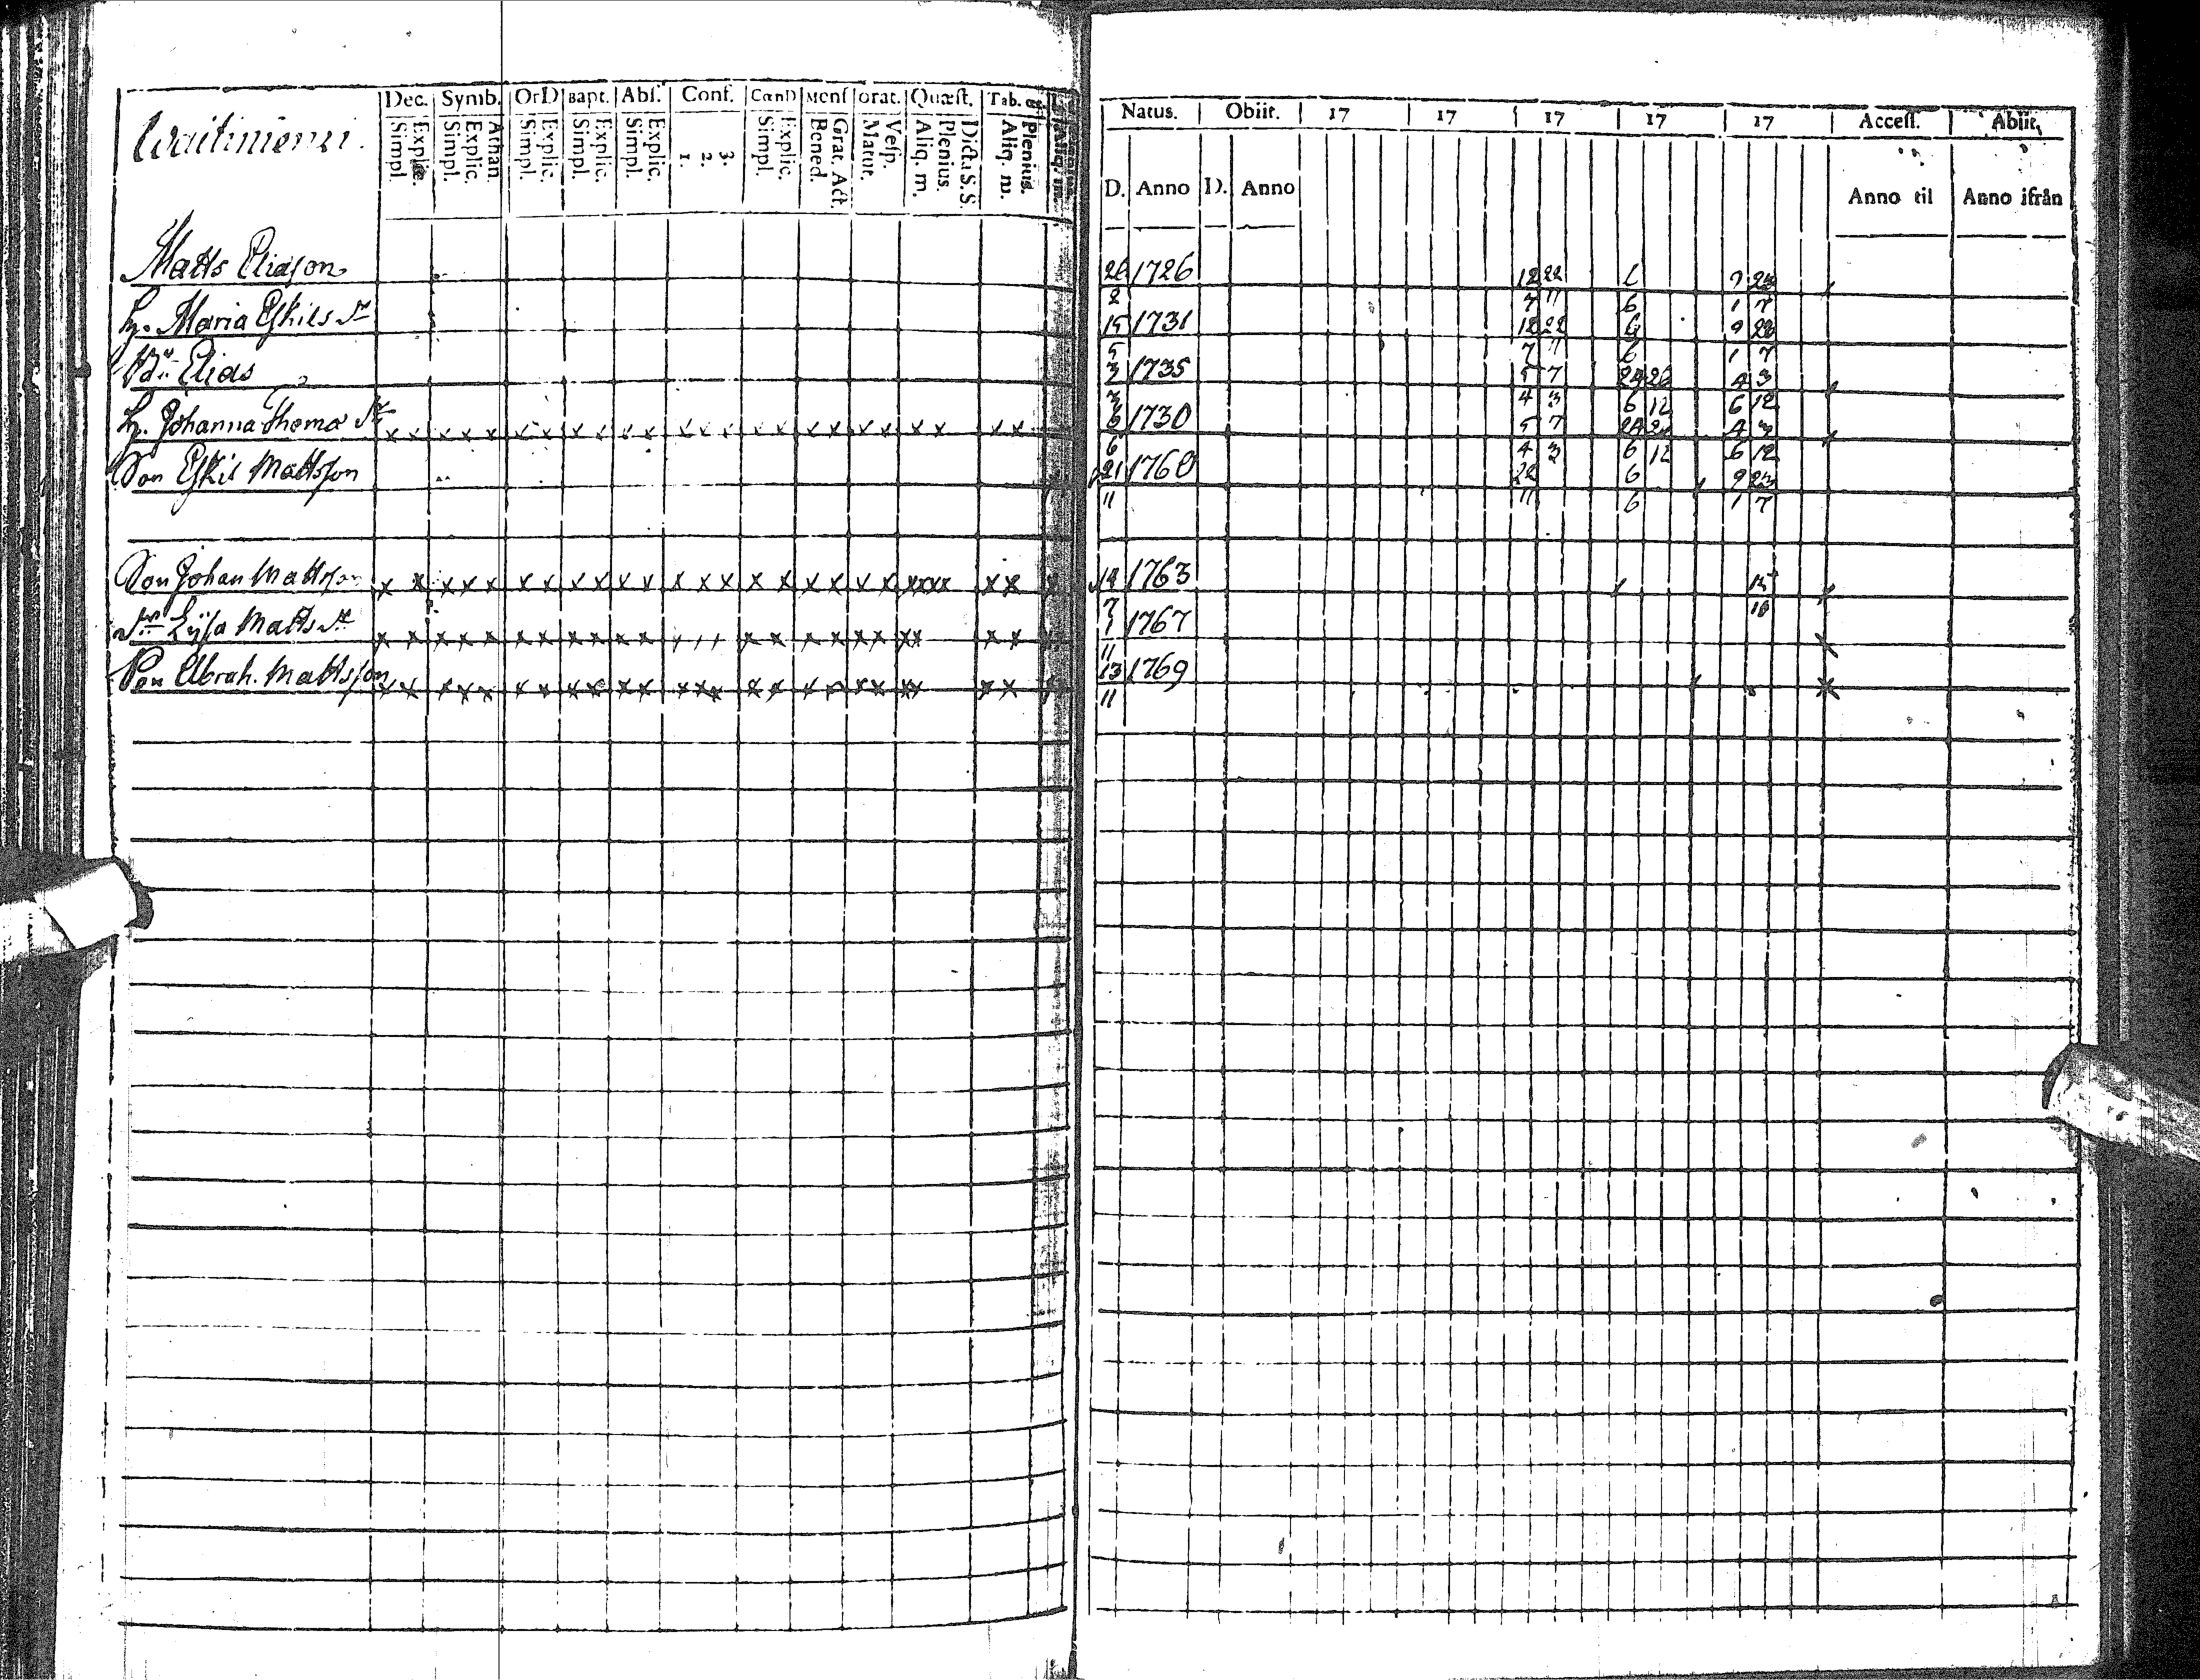 Dec. Symb. OrD Bapt. Abs. Conf. CœnD Mens orat. Quæst. Tab. œc
Simpl. Explic. Simpl. Explic. Athan. Simpl. Explic. Simpl. Explic. Simpl. Explic. 1. 2. 3. Simpl. Explic. Bened. Grat. Act. Matut. Vesp. Aliq. m. Plenius. Dicta S.S. Aliq. m. Plenius.
Natus. Obiit. 17 17 17 17 17 Access. Abiit.
D. Anno D. Anno Anno til Anno ifrån
Waitiniemi.
Matts Eliason 26 1726 12 22
2 7 11 6 1 7
H. Maria Eskils dr 15 1731 12 22 6 9 22
5 7 11 6 1 7
Elias 3 1735 5 7 24 26 4 3
3 4 3 6 12 6 12
H. Johanna Thoma dr x x x x x x x x x x x x x x x x x x x x x x x x 6 1730 5 7 24 4 3
6 4 3 6 12 6 12
Son Eskil Mattsson 21 1760 22 6 9 23
11 11 6 1 7
Son Johan Mattsson x x x x x x x x x x x x x x x x x x x x xxxx x x 14 1763
7
Lisa Matts dr x x x x x x x x x x x x x x x x x x x x x x x x 1 1767
11
Son Abrah. Mattsson x x x x x x x x x x x x x x x x x x x x x x x x 13 1769
11